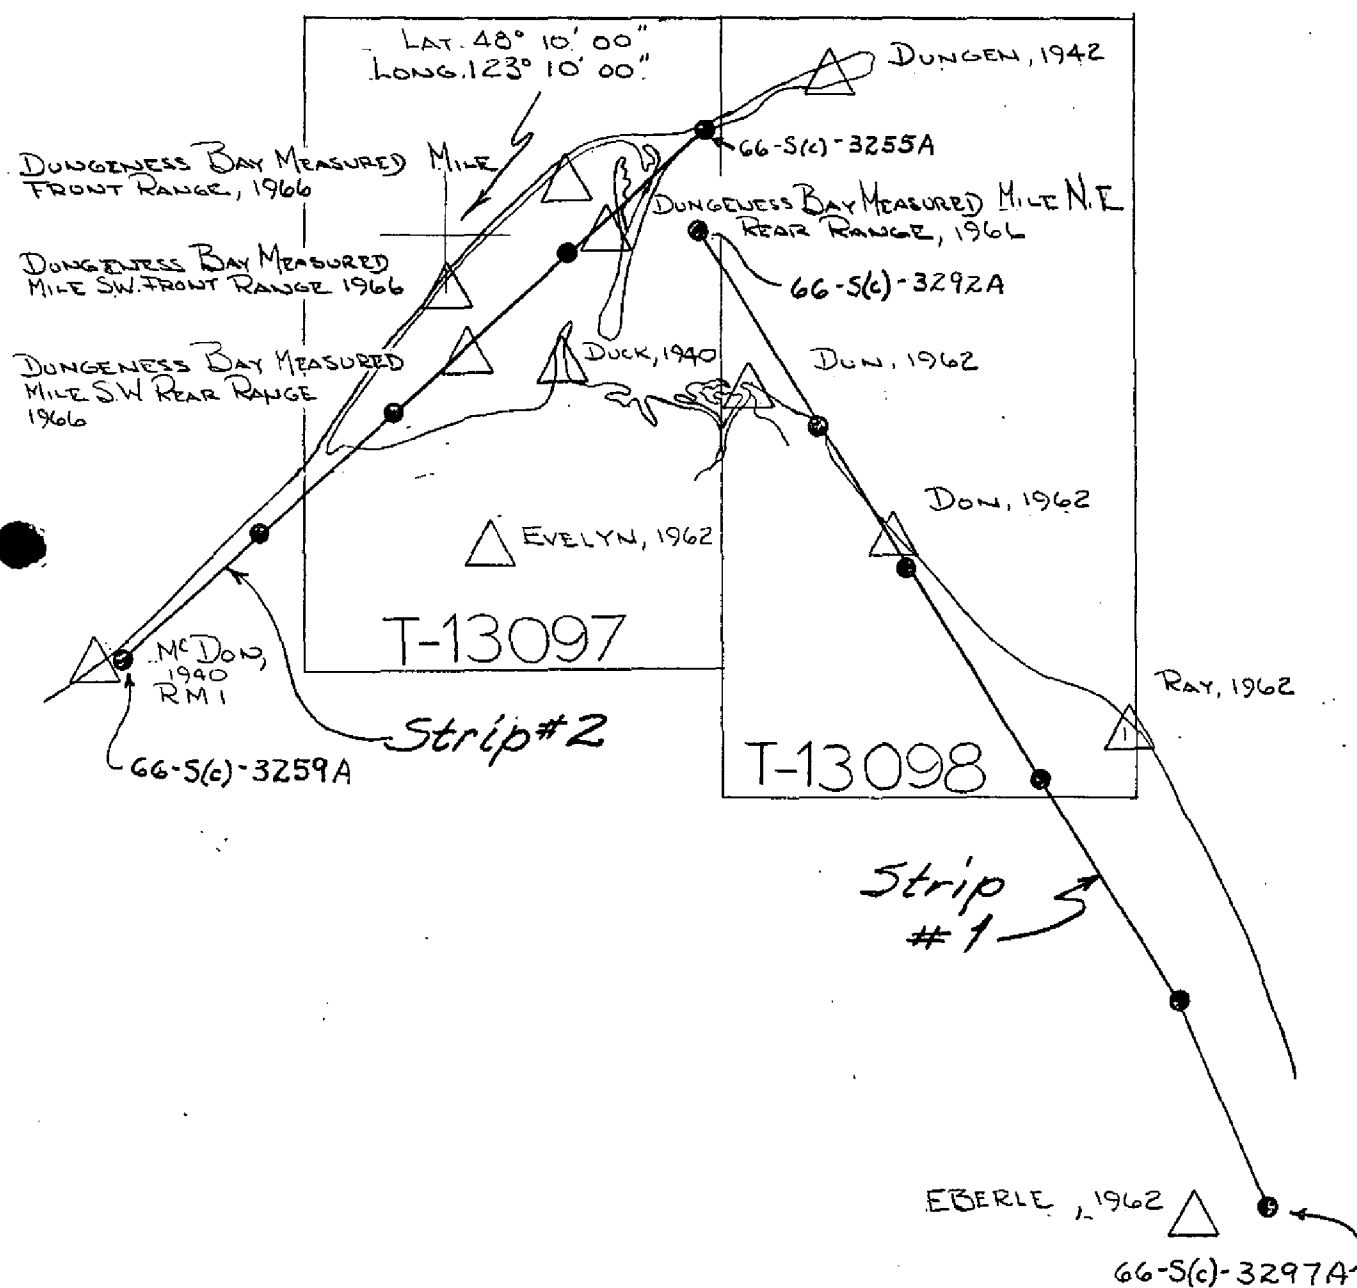 LAT. 48° 10' 00"
LONG. 123° 10' 00"
DUNGEN, 1942
66-S(c)-3255A
DUNGENESS BAY MEASURED MILE
FRONT RANGE, 1966
DUNGENESS BAY MEASURED MILE N.E
REAR RANGE, 1966
DUNGENESS BAY MEASURED
MILE S.W. FRONT RANGE 1966
66-S(c)-3292A
DUNGENESS BAY MEASURED
MILE S.W REAR RANGE
1966
DUCK, 1940
DUN, 1962
DON, 1962
EVELYN, 1962
T-13097
McDON,
1940
RM 1
RAY, 1962
Strip #2
T-13098
66-S(c)-3259A
Strip
#1
EBERLE, 1962
66-S(c)-3297A